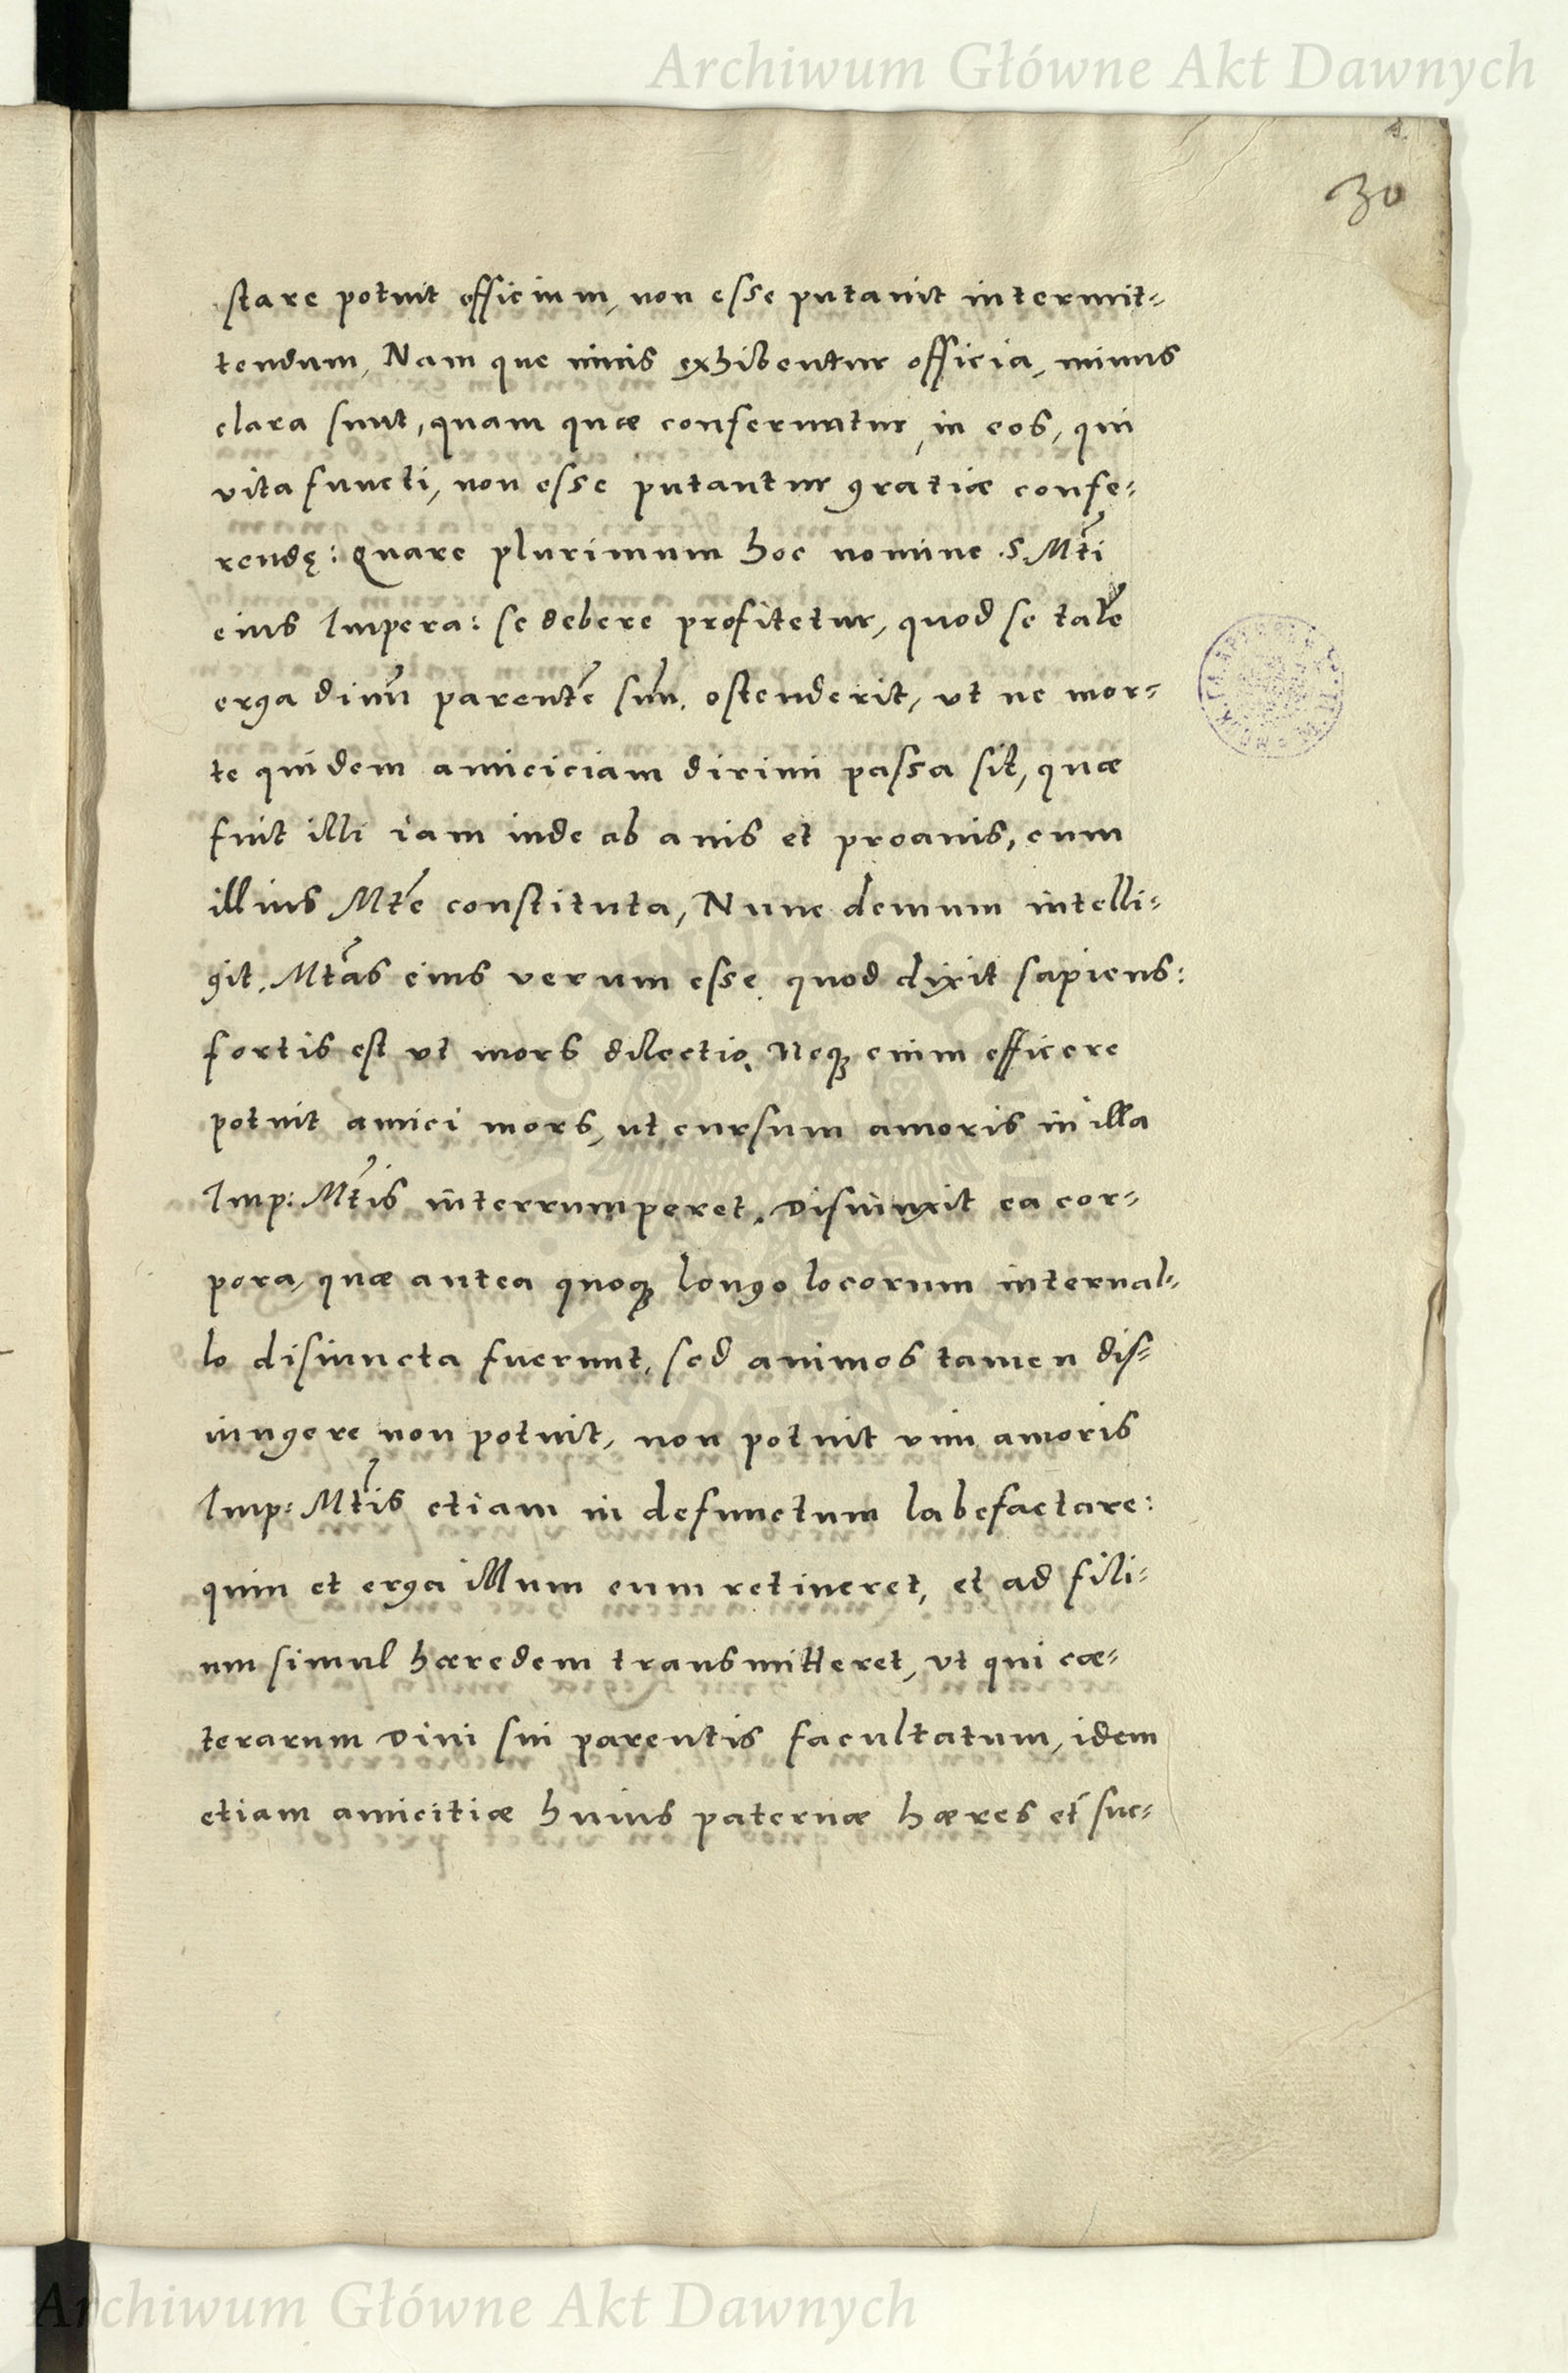 Archiwum Główne Akt Dawnych
30
stare potuit officium, non esse putauit intermit=
tendum, Nam que uiuis exhibentur officia, minus
clara sunt, quam quæ conferuntur, in eos, qui
vita functi, non esse putantur gratiæ confe=
rendę: Quare plurimum hoc nomine .S. Mti
eius Impera: se debere profitetur, quod se talē
erga diuū parentē suū. ostenderit, vt ne mor=
te quidem amiciciam dirimi passa sit, quæ
fuit illi iam inde ab auis et proauis, cum
illius Mte constituta, Nunc demum intelli=
git. Mtas eius verum esse quod dixit sapiens:
fortis est vt mors dilectio. Neq; enim efficere
potuit amici mors, ut cursum amoris in illā
Imp: Mtis interrumperet. Disiunxit ea cor=
pora, quæ antea quoq; longo locorum interual=
lo disiuncta fuerunt, sed animos tamen dis=
iungere non potuit, non potuit vim amoris
Imp: Mtis etiam in defunctum labefactare:
quin et erga illum eum retineret, et ad fili=
um simul hæredem transmitteret, vt qui cæ=
terarum Diui sui parentis facultatum, idem
etiam amicitiæ huius paternæ hæres et suc=
Archiwum Główne Akt Dawnych